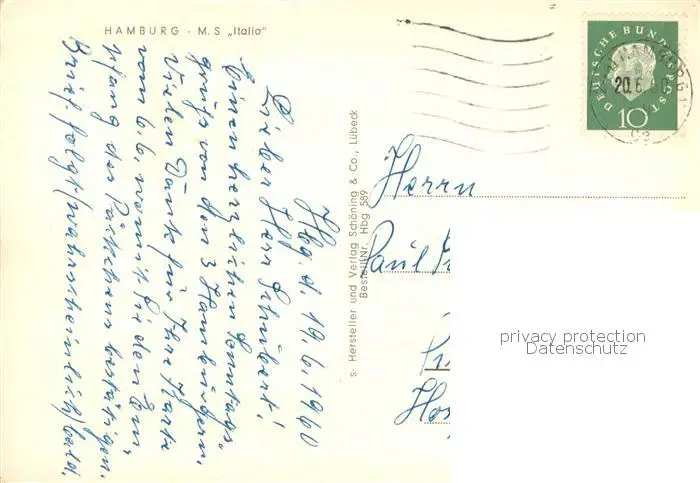 HAMBURG - M.S „Italia"
Hbg. d. 19.6.1960
Lieber Herr Schubert!
Einen herzlichen Sonntags-
gruß von den 3 Hamburgern.
Vielen Dank für Ihre Karte
vom 6.6, womit Sie den Em-
pfang des Päckchens bestätigen.
Brief folgt (wahrscheinlich) bald.
Hersteller und Verlag Schöning & Co., Lübeck
Bestell-Nr. Hbg 589
DEUTSCHE BUNDESPOST
10
HAMBURG 1
20.6.60
Herrn
Paul
privacy protection
Datenschutz